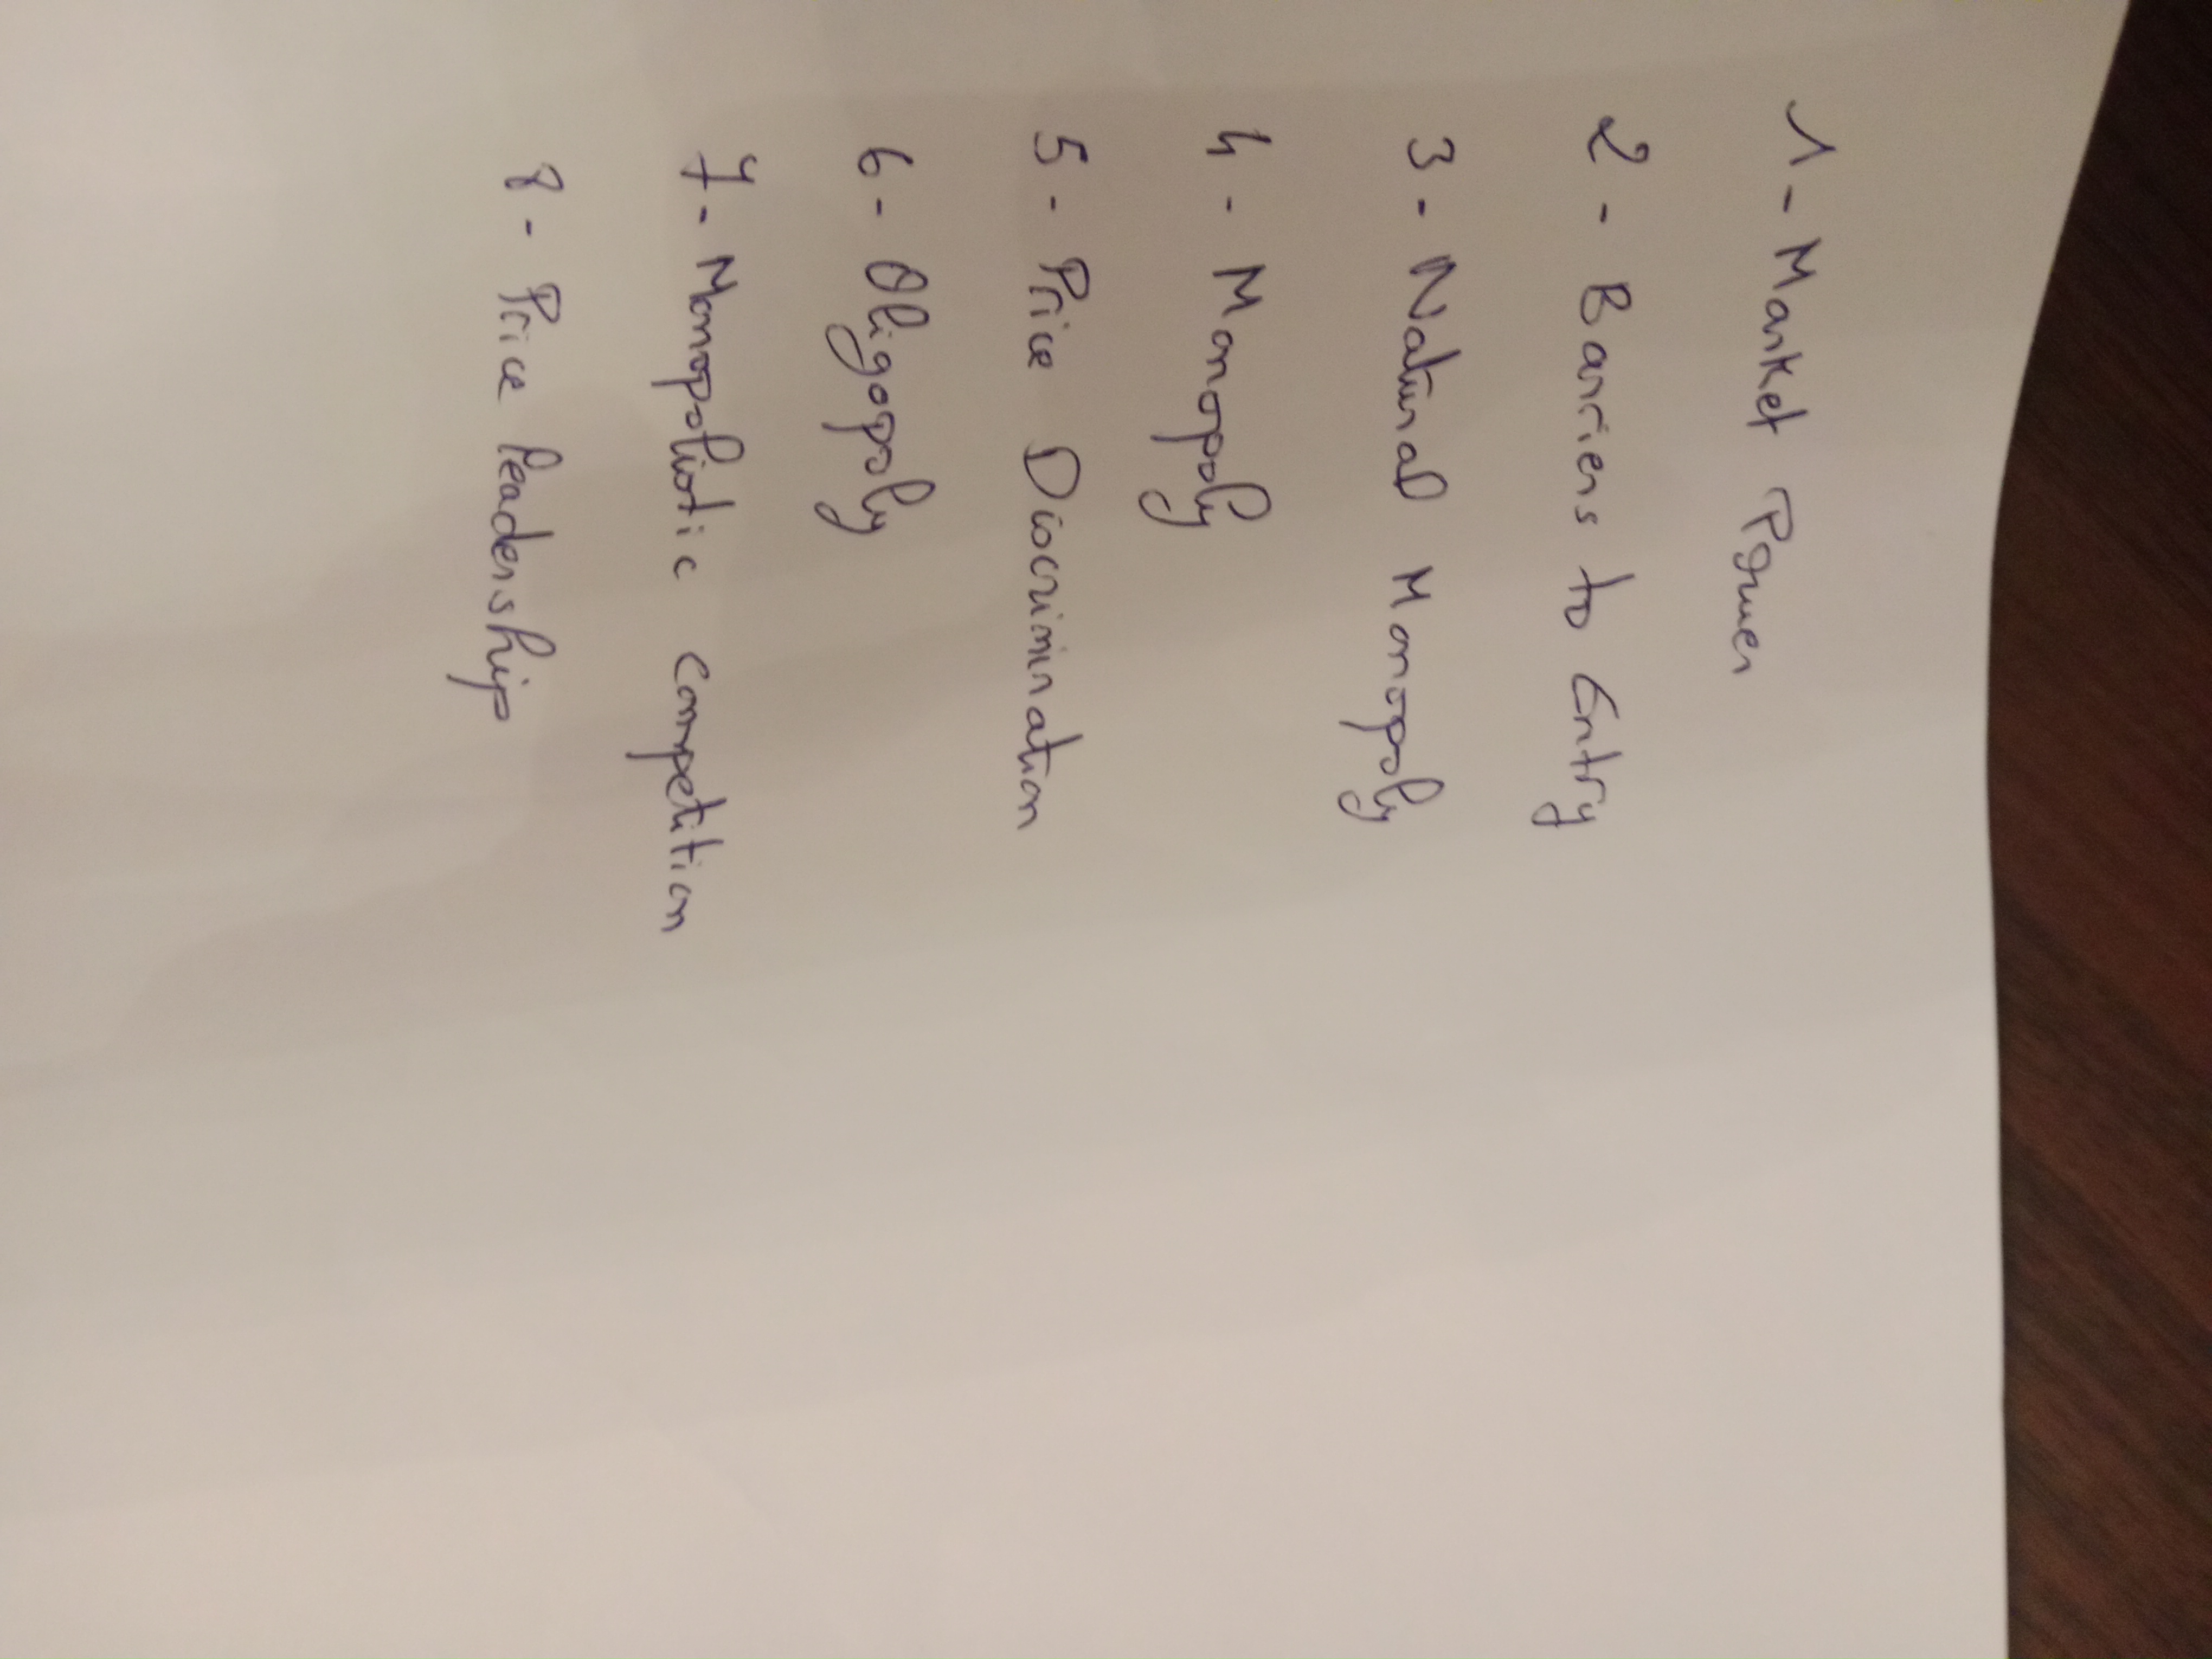 1 - Market Power
2 - Barriers to Entry
3 - Natural Monopoly
4 - Monopoly
5 - Price Discrimination
6 - Oligopoly
7 - Monopolistic competition
8 - Price leadership